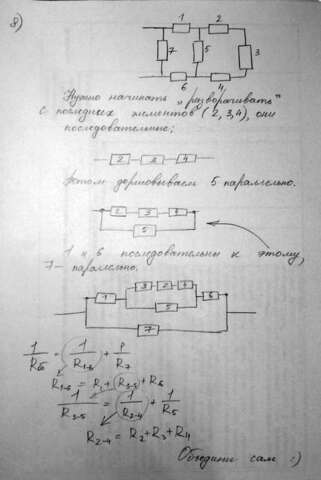 8)
1 2
7 5 3
6 4
Нужно начинать „разворачивать"
с последних элементов (2, 3, 4), они
последовательно;
2 3 4
Потом дорисовываем 5 параллельно.
2 3 4
5
1 и 6 последовательны к этому,
7 - параллельно.
3 2 4
1 5 6
7
1/Rоб = 1/R1-6 + 1/R7
R1-6 = R1 + R2-5 + R6
1/R2-5 = 1/R2-4 + 1/R5
R2-4 = R2 + R3 + R4
Объедини сам :)